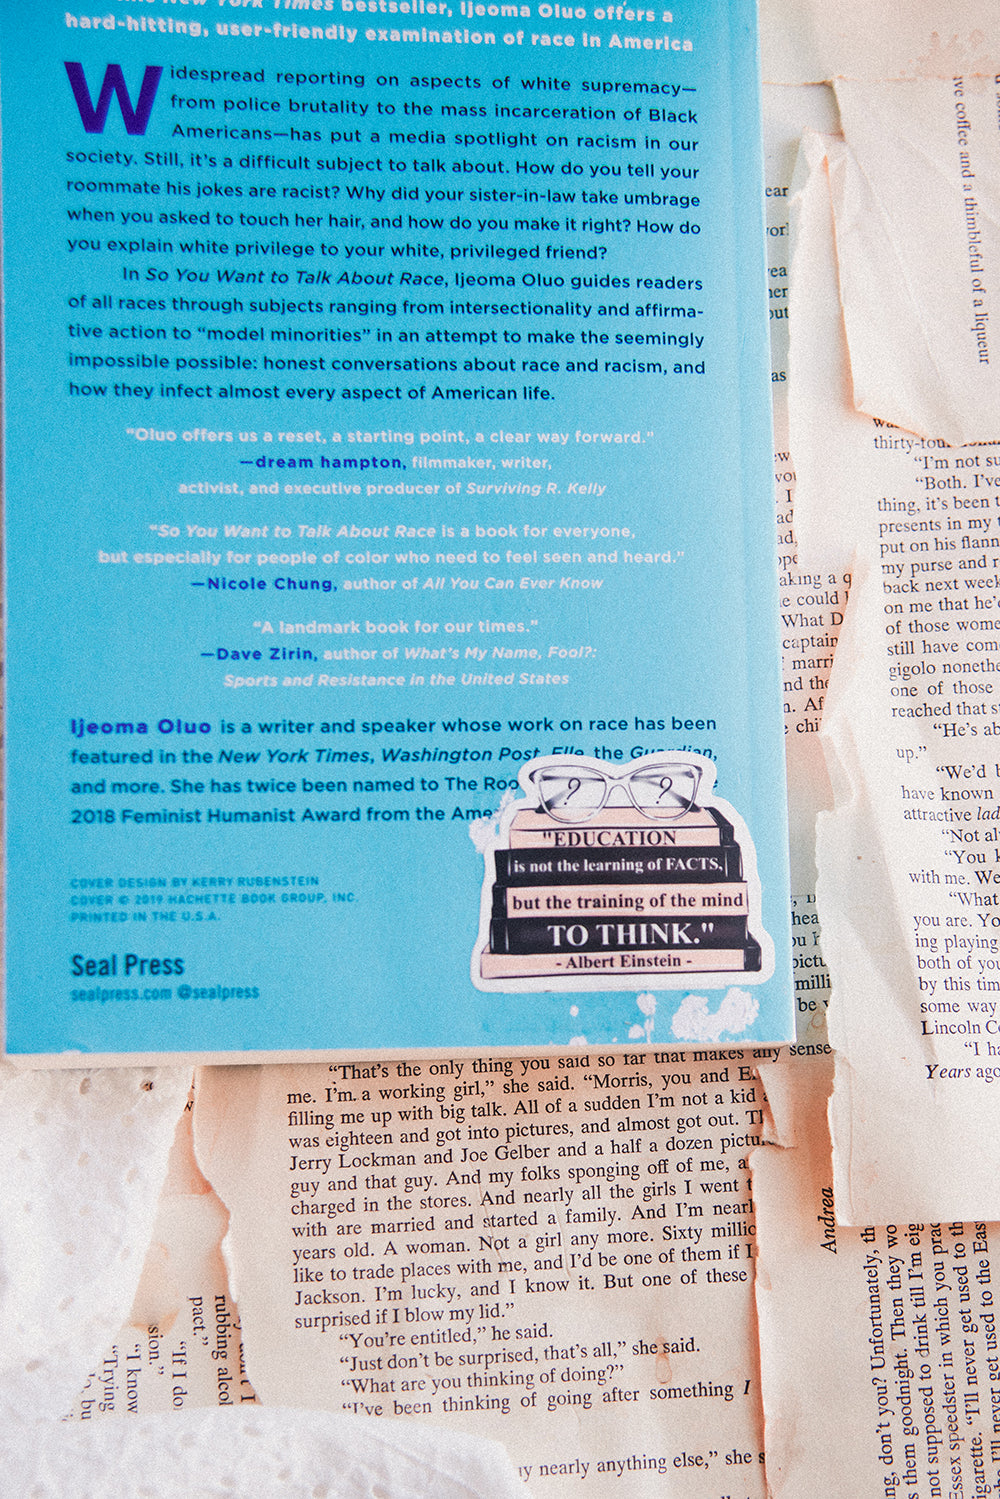 New York Times bestseller, Ijeoma Oluo offers a
hard-hitting, user-friendly examination of race in America
Widespread reporting on aspects of white supremacy—
from police brutality to the mass incarceration of Black
Americans—has put a media spotlight on racism in our
society. Still, it's a difficult subject to talk about. How do you tell your
roommate his jokes are racist? Why did your sister-in-law take umbrage
when you asked to touch her hair, and how do you make it right? How do
you explain white privilege to your white, privileged friend?
In So You Want to Talk About Race, Ijeoma Oluo guides readers
of all races through subjects ranging from intersectionality and affirma-
tive action to “model minorities” in an attempt to make the seemingly
impossible possible: honest conversations about race and racism, and
how they infect almost every aspect of American life.
“Oluo offers us a reset, a starting point, a clear way forward.”
—dream hampton, filmmaker, writer,
activist, and executive producer of Surviving R. Kelly
“So You Want to Talk About Race is a book for everyone,
but especially for people of color who need to feel seen and heard.”
—Nicole Chung, author of All You Can Ever Know
“A landmark book for our times.”
—Dave Zirin, author of What's My Name, Fool?:
Sports and Resistance in the United States
Ijeoma Oluo is a writer and speaker whose work on race has been
featured in the New York Times, Washington Post, Elle, the Guardian,
and more. She has twice been named to The Roo
2018 Feminist Humanist Award from the Ame
COVER DESIGN BY KERRY RUBENSTEIN
COVER © 2019 HACHETTE BOOK GROUP, INC.
PRINTED IN THE U.S.A.
Seal Press
sealpress.com @sealpress
"EDUCATION
is not the learning of FACTS,
but the training of the mind
TO THINK."
- Albert Einstein -
“That's the only thing you said so far that makes any sense
me. I'm a working girl,” she said. “Morris, you and E
filling me up with big talk. All of a sudden I'm not a kid
was eighteen and got into pictures, and almost got out.
Jerry Lockman and Joe Gelber and a half a dozen pictu
guy and that guy. And my folks sponging off of me, a
charged in the stores. And nearly all the girls I went
with are married and started a family. And I'm nearl
years old. A woman. Not a girl any more. Sixty millio
like to trade places with me, and I'd be one of them if I
Jackson. I'm lucky, and I know it. But one of these
surprised if I blow my lid.”
“You're entitled,” he said.
“Just don't be surprised, that's all,” she said.
“What are you thinking of doing?”
“I've been thinking of going after something I
ny nearly anything else,” she s
ive coffee and a thimbleful of a liqueur
thirty-four
“I'm not su
“Both. I've
thing, it's been t
presents in my
put on his flann
my purse and r
back next week
on me that he'd
of those wome
still have com
gigolo nonethe
one of those
reached that s
“He's ab
up.”
“We'd b
have known
attractive lad
“Not al
“You k
with me. We
“What
you are. Yo
ing playing
both of you
by this tim
some way
Lincoln C
“I ha
Years ago
aking a q
e could
What D
captain
marri
nd the
n. Af
chi
hea
pictu
milli
be
Andrea
ng, don't you? Unfortunately, th
s them goodnight. Then they wo
not supposed to drink till I'm eig
Essex speedster in which you prac
igarette. “I'll never get used to th
I'll never get used to the Eas
rubbing alcol
pact.”
“If I do
sion.”
“I know
“Trying